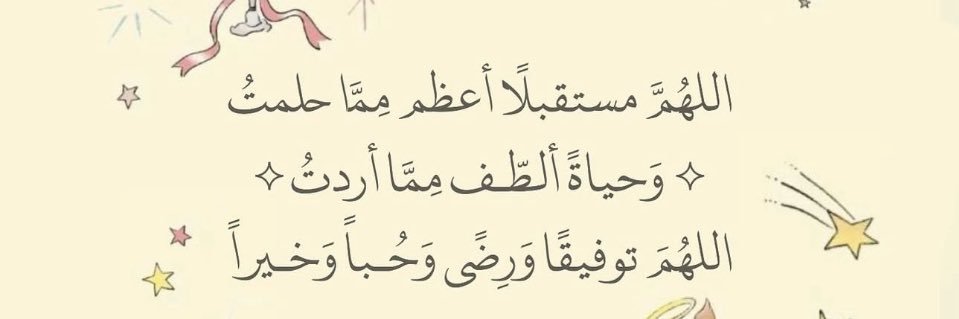 اللهُمَّ مستقبلًا أعظم مِمَّا حلمتُ
✧ وَحياةً ألطّـف مِمَّا أردتُ ✧
اللهُمَ توفيقًا وَرِضًى وَحُـباً وَخـيراً